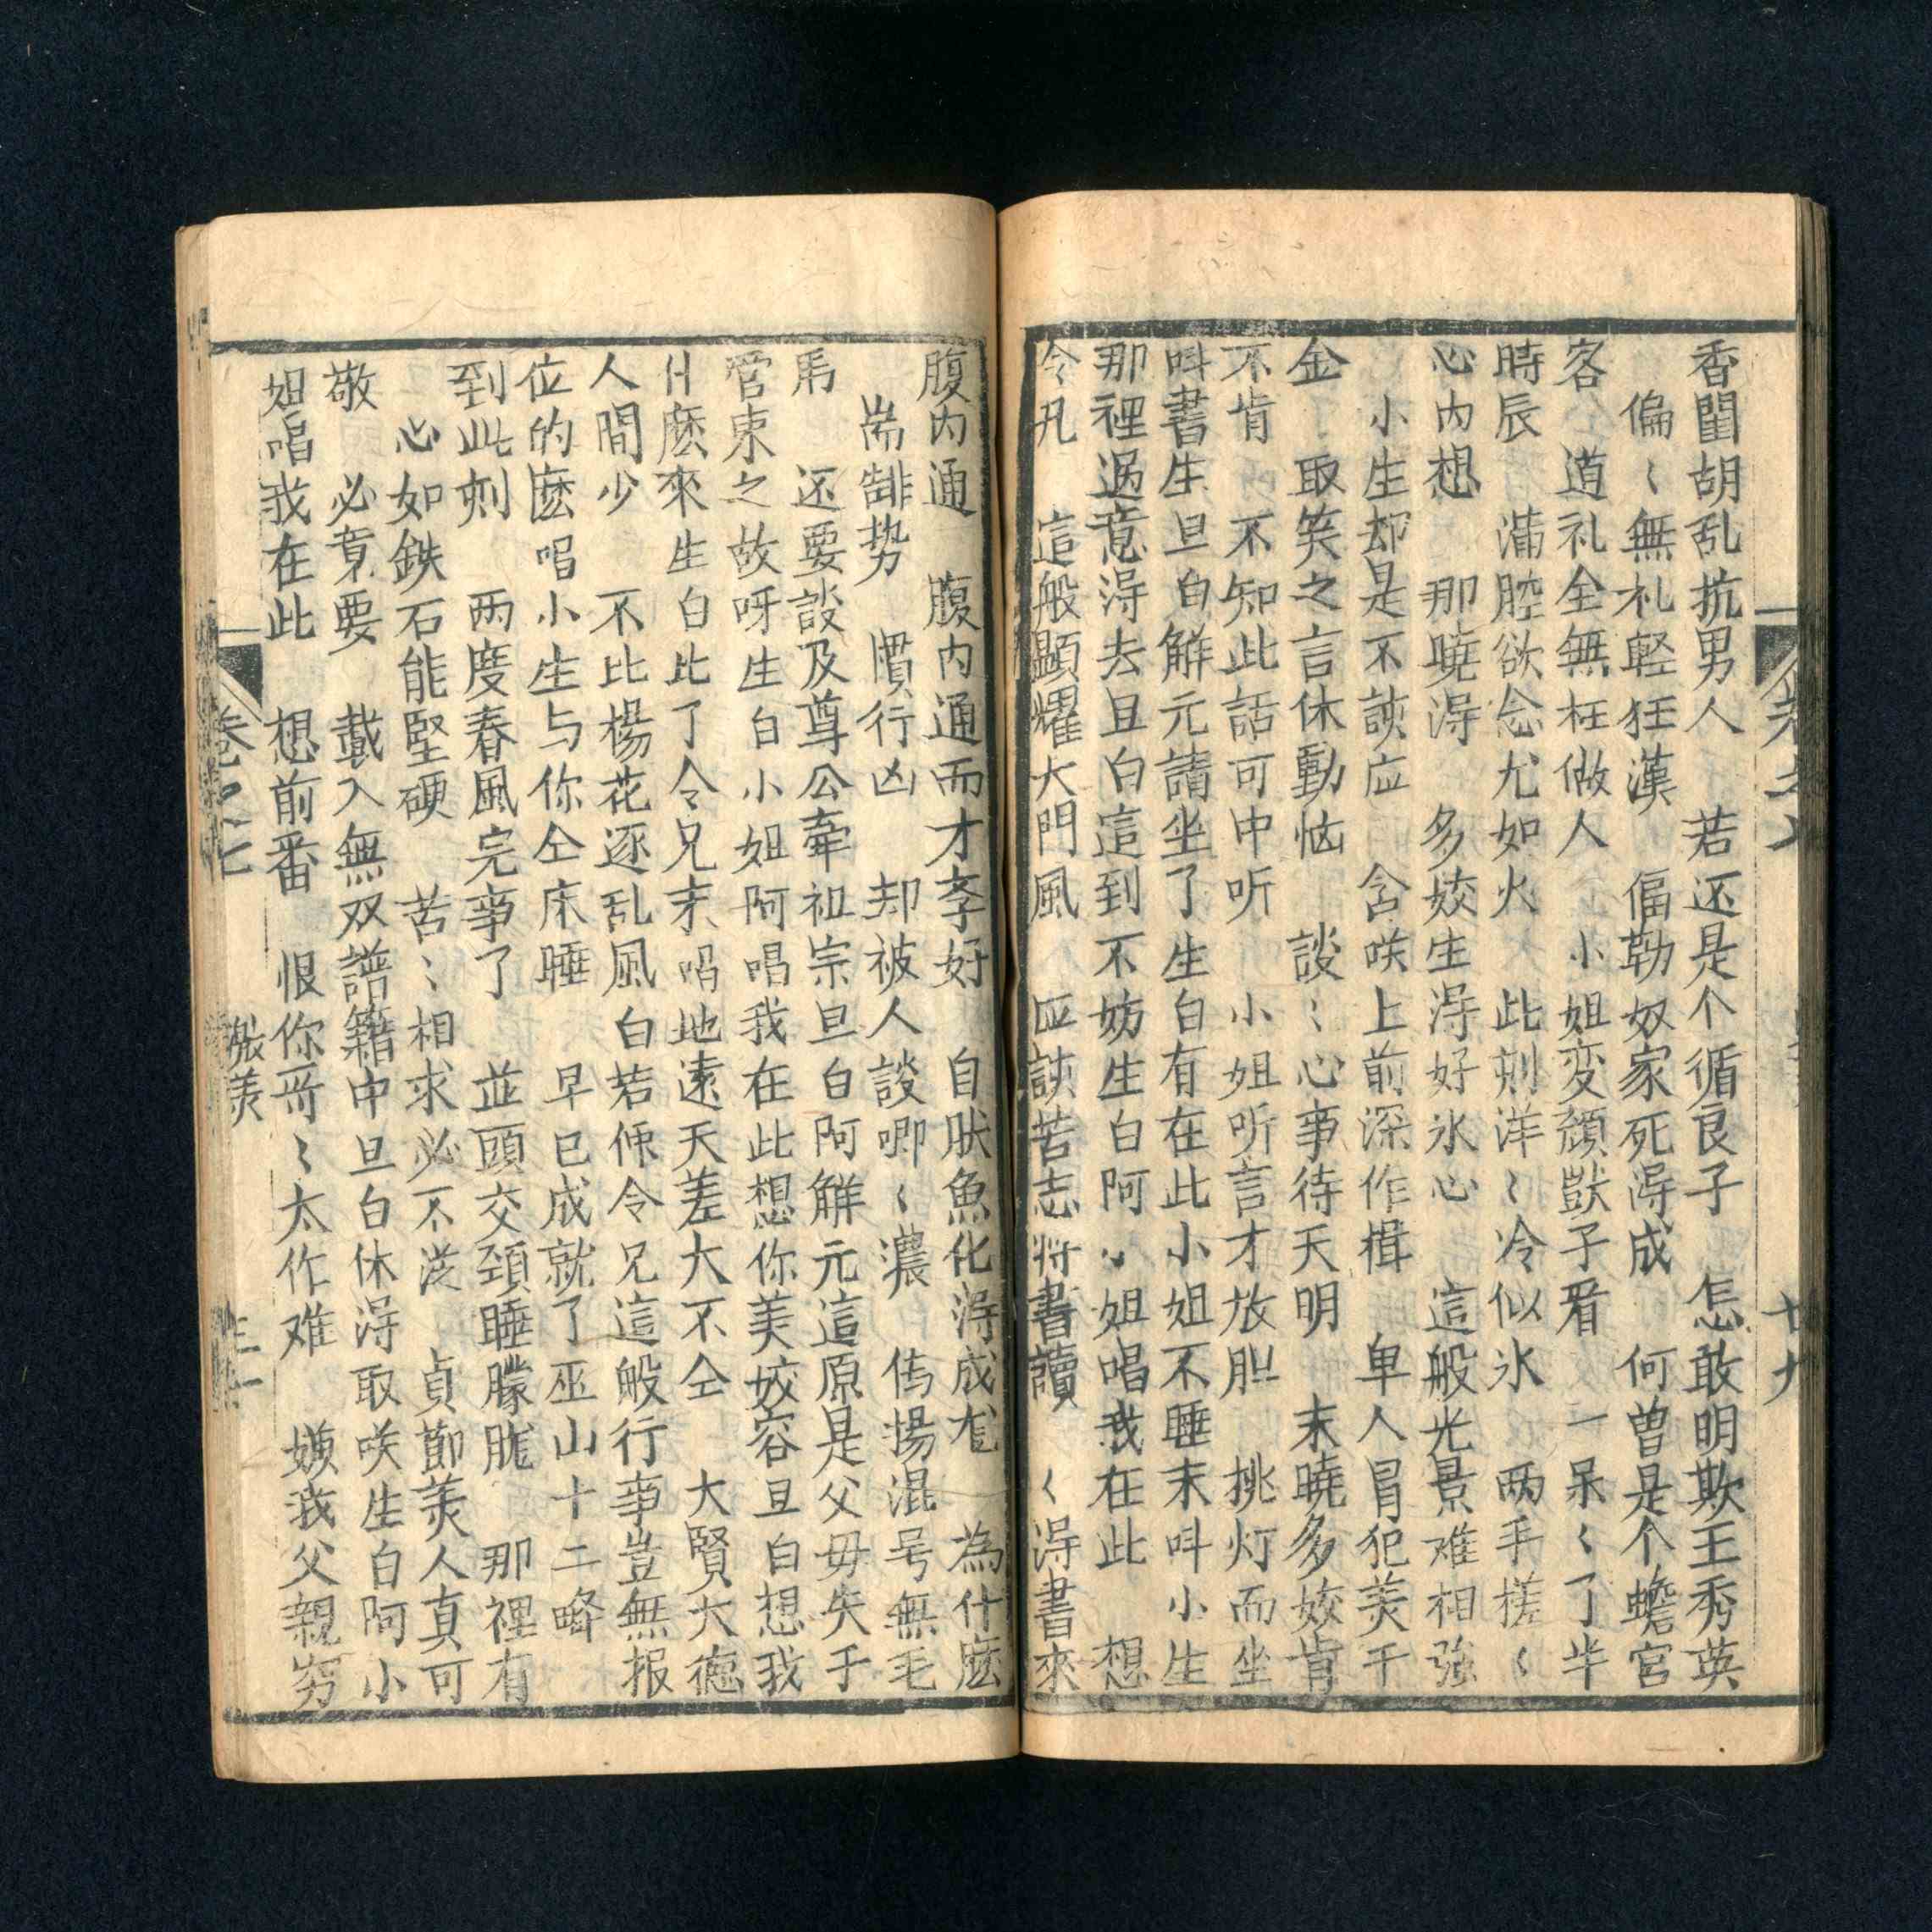 香閨胡乱抗男人　若还是个循良子　怎敢明欺王秀英
偏〻無礼輕狂漢　偪勒奴家死淂成　何曽是个蟾宮
客　道礼全無枉做人　小姐変顔獃子看　一呆〻了半
時辰　滿腔欲念尤如火　此刻洋〻冷似氷　两手搓〻
心内想　那曉淂　多姣生淂好氷心　這般光景难相強
小生却是不談应　含咲上前深作揖　卑人冒犯美千
金　取笑之言休動恼　談〻心事待天明　末曉多姣肯
不肯　不知此話可中听　小姐听言才放胆　挑灯而坐
呌書生旦白觧元請坐了生白有在此小姐不睡末呌小生
那裡過意淂去旦白這到不妨生白阿小姐唱我在此　想
令兄　這般顯耀大門風　应該苦志将書讀　〻淂書來
卷之七
廿九
腹内通　腹内通而才李好　自肰魚化淂成龙　為什麽
耑誹势　慣行凶　却被人談唧〻濃　俦揚混号無毛
馬　还要談及尊公牽祖宗旦白阿觧元這原是父毋失于
管束之故呀生白小姐阿唱我在此想你美姣容旦白想我
什麽來生白比了令兄末唱地遠天差大不仝　大賢大德
人間少　不比楊花逐乱風白若像令兄這般行事豈無报
位的麽唱小生与你仝床睡　早已成就了巫山十二峰
到此刻　两度春風完事了　並頭交頚睡朦朧　那裡有
心如鉄石能堅硬　苦〻相求必不從　貞節美人真可
敬　必竟要　載入無双譜籍中旦白休淂取咲生白阿小
姐唱我在此　想前番　恨你哥〻太作难　嫌我父親窮
卷之七
三十